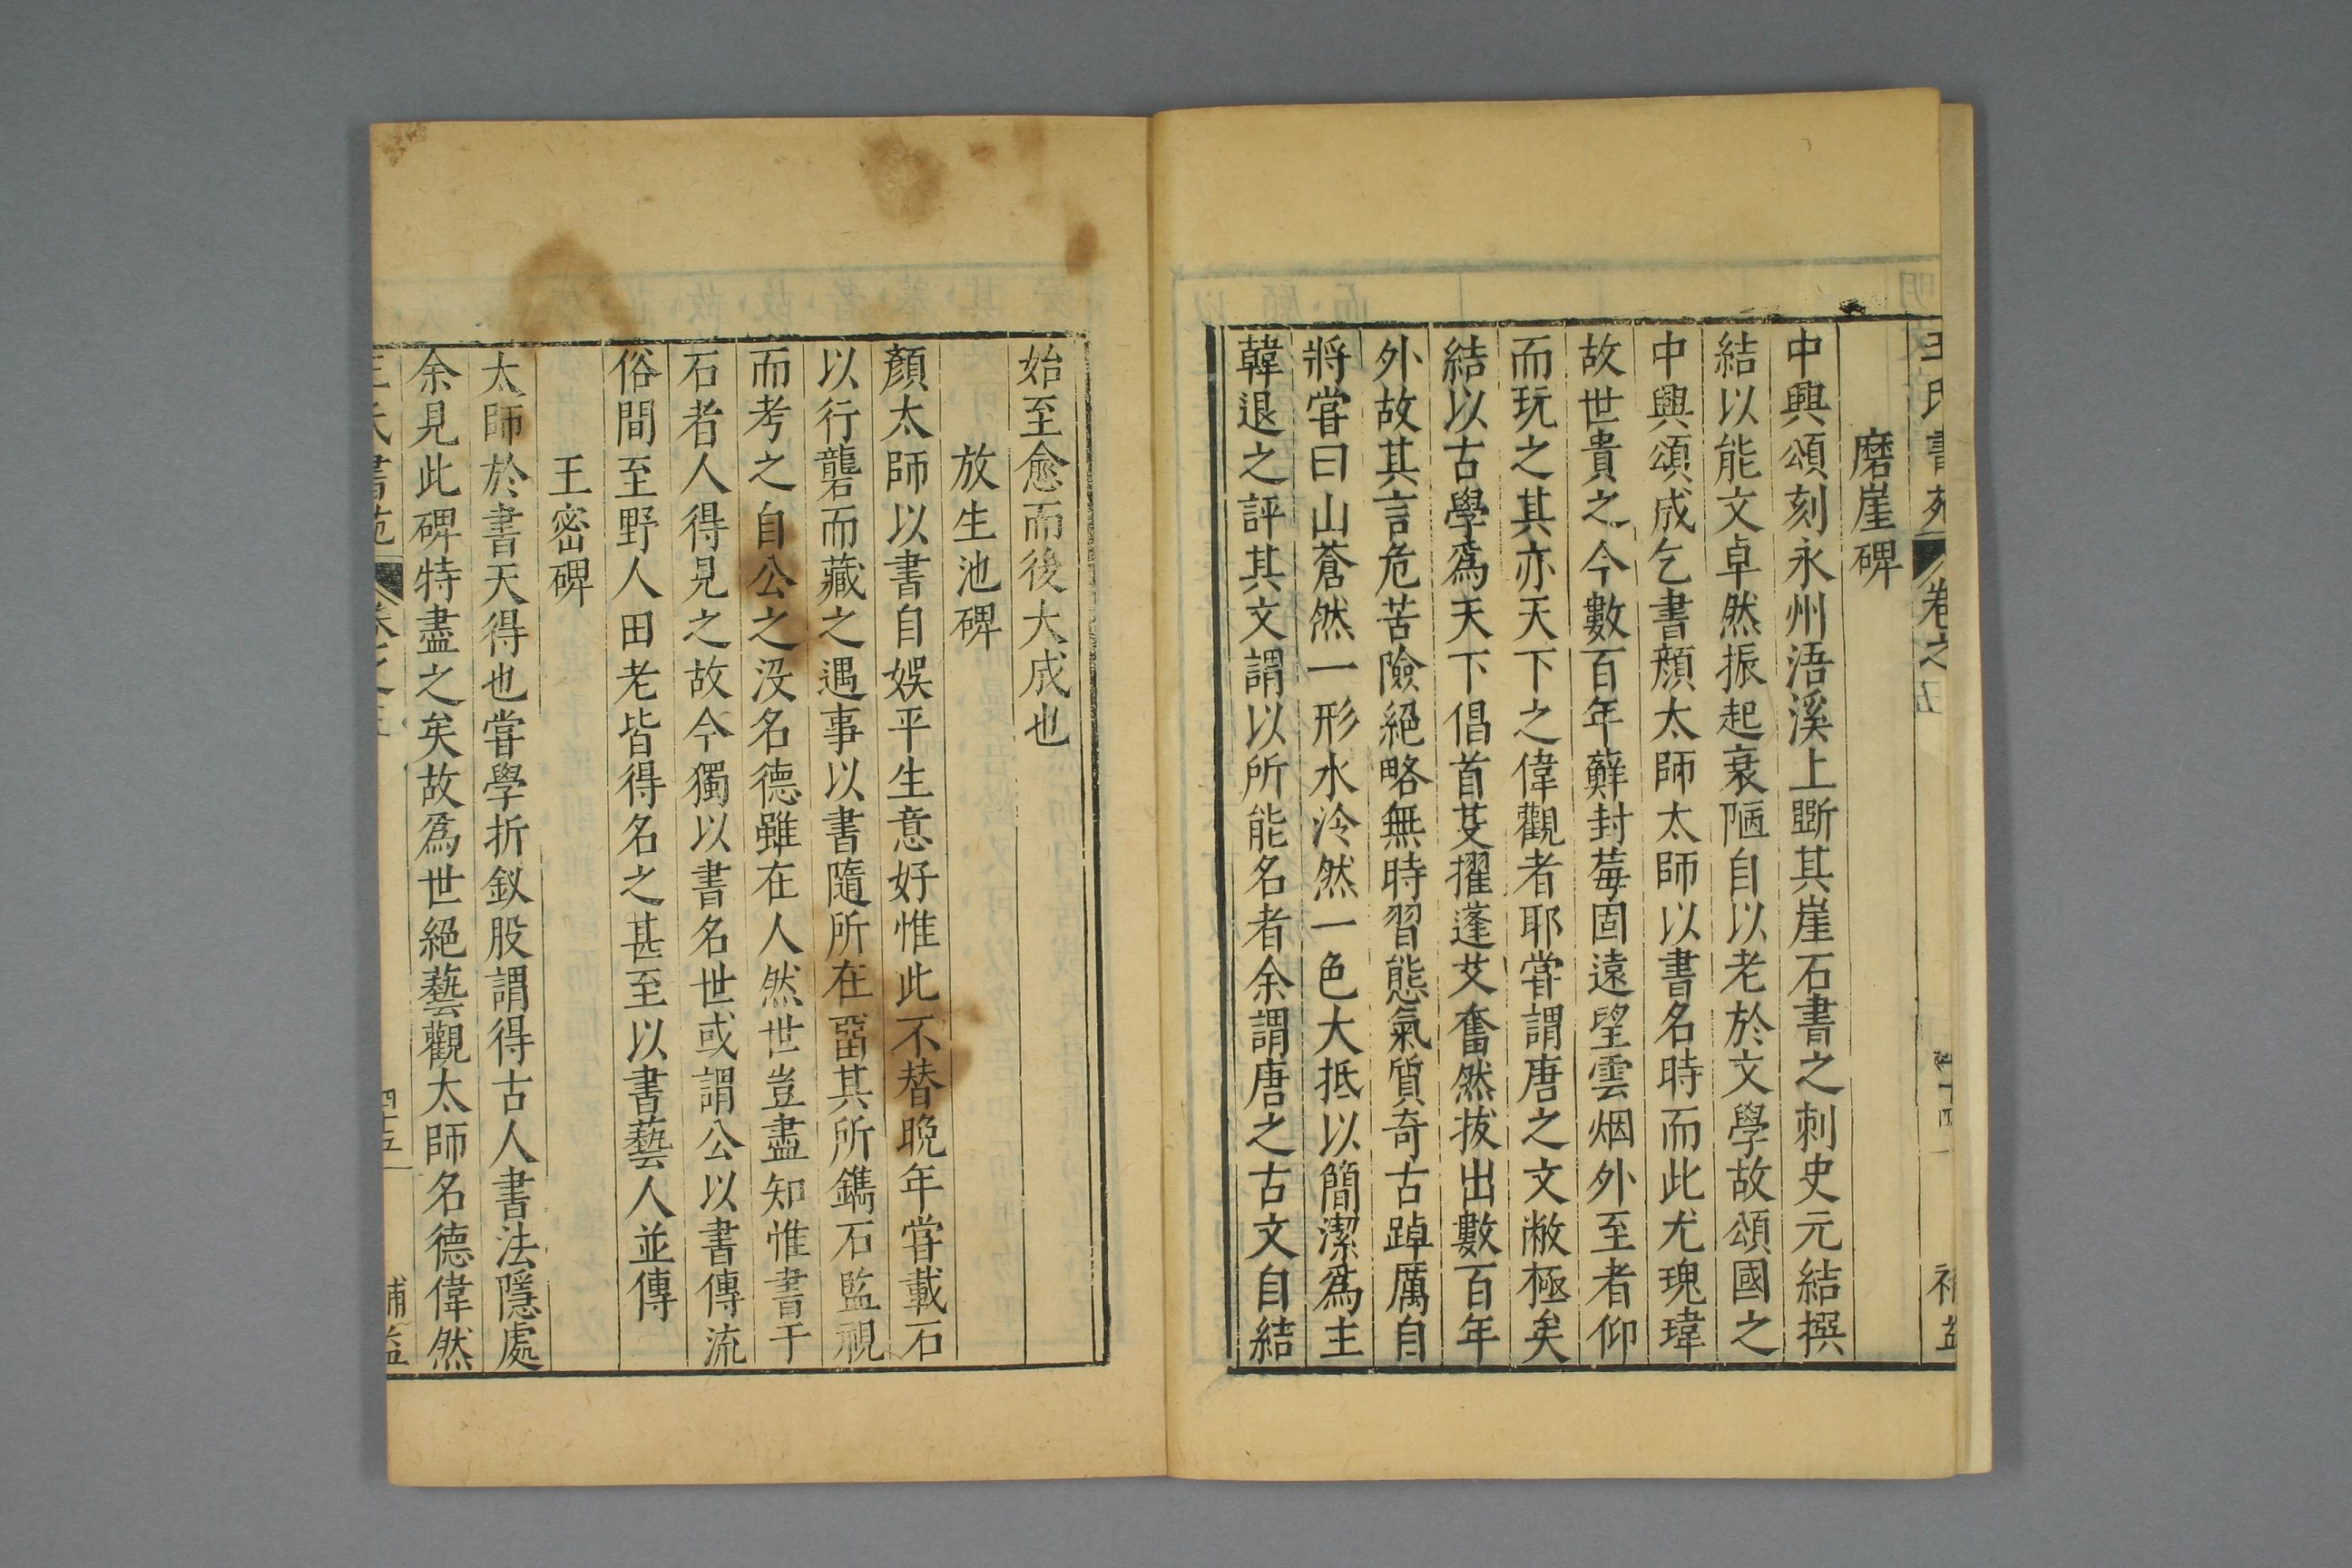 王氏書苑 卷之五 補益
磨崖碑
中興頌刻永州浯溪上斲其崖石書之刺史元結撰
結以能文卓然振起衰陋自以老於文學故頌國之
中興頌成乞書顏太師太師以書名時而此尤瑰瑋
故世貴之今數百年蘚封莓固遠望雲烟外至者仰
而玩之其亦天下之偉觀者耶嘗謂唐之文敝極矣
結以古學爲天下倡首芟擢蓬艾奮然拔出數百年
外故其言危苦險絕略無時習態氣質奇古踔厲自
將嘗曰山蒼然一形水泠然一色大抵以簡潔爲主
韓退之評其文謂以所能名者余謂唐之古文自結
始至愈而後大成也
放生池碑
顏太師以書自娛平生意好惟此不替晚年嘗載石
以行礱而藏之遇事以書隨所在畱其所鐫石監視
而考之自公之没名德雖在人然世豈盡知惟書于
石者人得見之故今獨以書名世或謂公以書傳流
俗間至野人田老皆得名之甚至以書藝人並傳
王密碑
太師於書天得也嘗學折釵股謂得古人書法隱處
余見此碑特盡之矣故爲世絕藝觀太師名德偉然
王氏書苑 卷之五 四五 補益